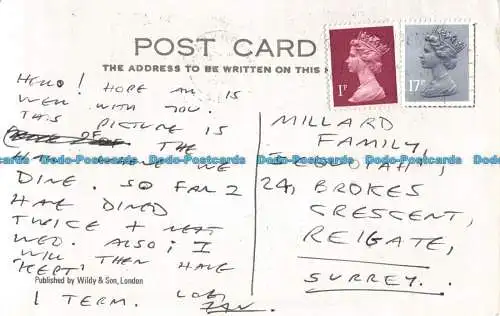 POST CARD
THE ADDRESS TO BE WRITTEN ON THIS
1P
17P
HELLO! HOPE ALL IS
WELL WITH YOU.
THIS PICTURE IS
OF THE
HALL WHERE WE
DINE. SO FAR I
HAVE DINED
TWICE + NEXT
WED. ALSO; I
WILL THEN HAVE
'KEPT'
1 TERM. LOVE,
Published by Wildy & Son, London
MILLARD
FAMILY,
24, BROKES
CRESCENT,
REIGATE,
SURREY.
Dodo-Postcards Dodo-Postcards Dodo-Postcards Dodo-Postcards